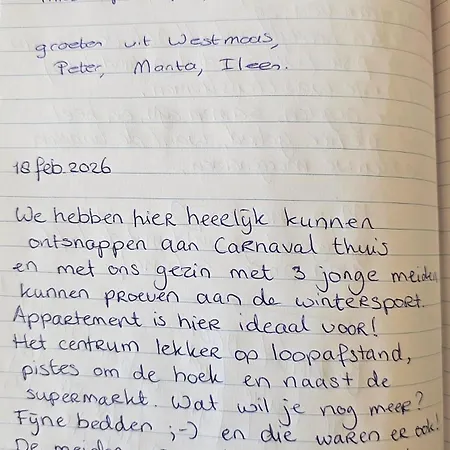 groeten uit Westmaas,
Peter, Manta, Ileen.
18 feb. 2026
We hebben hier heerlijk kunnen
ontsnappen aan Carnaval thuis
en met ons gezin met 3 jonge meiden
kunnen proeven aan de wintersport.
Appartement is hier ideaal voor!
Het centrum lekker op loopafstand,
pistes om de hoek en naast de
supermarkt. Wat wil je nog meer?
Fijne bedden ;-) en die waren er ook!
De meiden